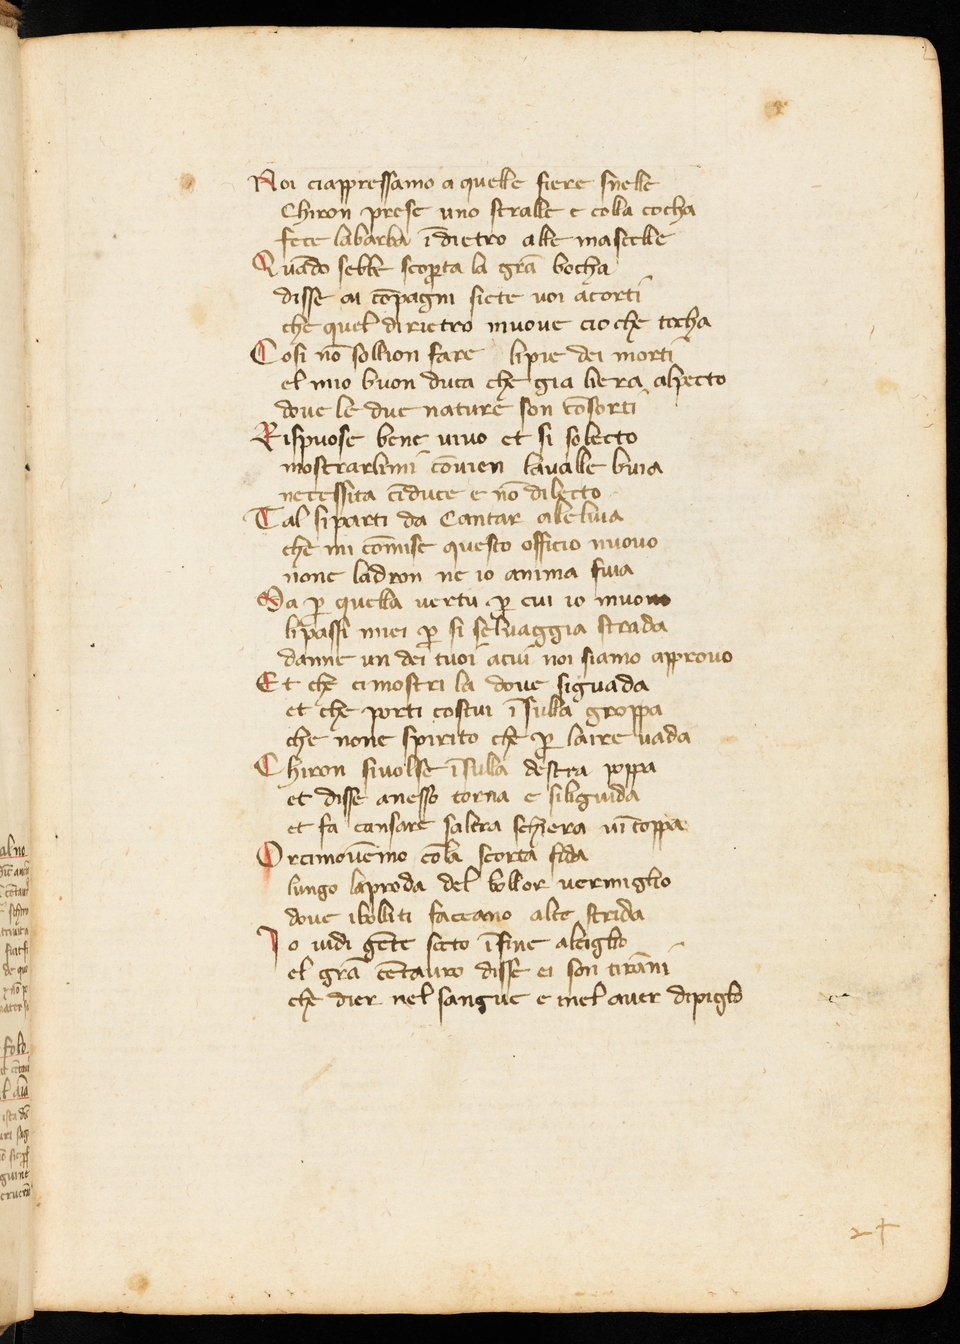 Noi ciappressamo a quelle fiere snelle
Chiron prese uno stralle e colla cocha
fece labarba īdietro alle mascelle
Quādo sebbe scoꝑta la grā bocha
disse ai cōpagni siete uoi acorti
che quel dirietro muoue cio che tocha
Cosi nō soglion fare lipie dei morti
el mio buon duca che gia liera alpecto
doue le due nature son cōsorti
Rispuose bene uiuo et si solecto
mostrarlimi cōuien laualle buia
necessita cīduce e nō dilecto
Tal siparti da Cantar aleluia
che mi cōmise questo officio nuouo
none ladron ne io anima fuia
Ma ꝑ quella uertu ꝑ cui io muouo
lipassi miei ꝑ si seluaggia strada
danne un dei tuoi acui noi siamo approuo
Et che cimostri la doue siguada
et che porti costui īsulla groppa
che none spirito che ꝑ laire uada
Chiron siuolse īsulla destra poppa
et disse anesso torna e siliguida
et fa cansare saltra schiera uītoppa
Orcimouēmo cōla scorta fida
lungo laproda del bollor uermiglio
doue ibolliti faceano alte strida
Io uidi gēte socto īfine alciglio
el grā cētauro disse ei son tirāni
che dier nel sangue e inel auer dipiglo
24